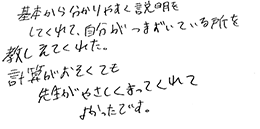 基本から分かりやすく説明を
してくれて、自分がつまずいている所を
教しえてくれた。
計算がおそくても
先生がやさしくまってくれて
よかったです。